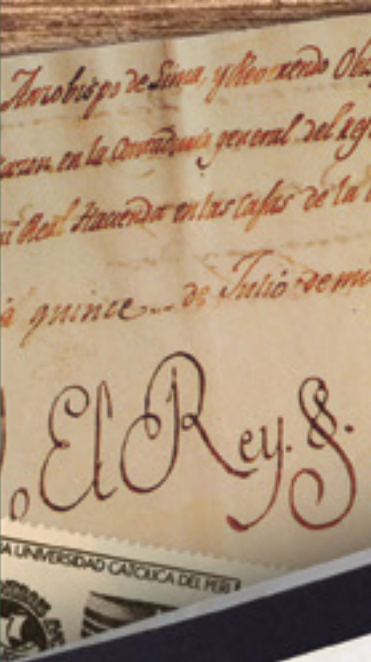 Arzobispo de Lima, y Reverendo Obis
en la Contaduria general del Rey
mi Real Hacienda en las Casas de la
à quince... de Julio de mi
Yo, El Rey. §.
A UNIVERSIDAD CATOLICA DEL PERU